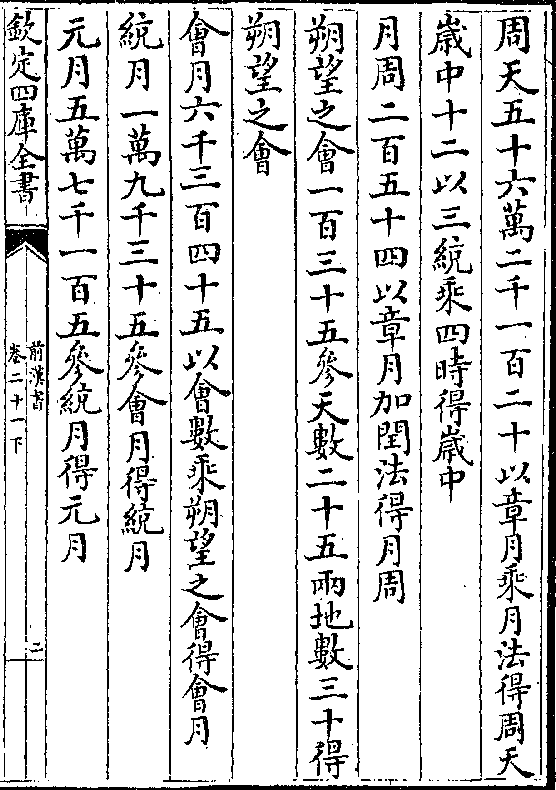 周天五十六萬二千一百二十以章月乘月法得周天
歲中十二以三統乘四時得歲中
月周二百五十四以章月加閏法得月周
朔望之會一百三十五參天數二十五兩地數三十得
朔望之會
會月六千三百四十五以會數乘朔望之會得會月
統月一萬九千三十五參會月得統月
元月五萬七千一百五參統月得元月
欽定四庫全書
前漢書
卷二十一下
二